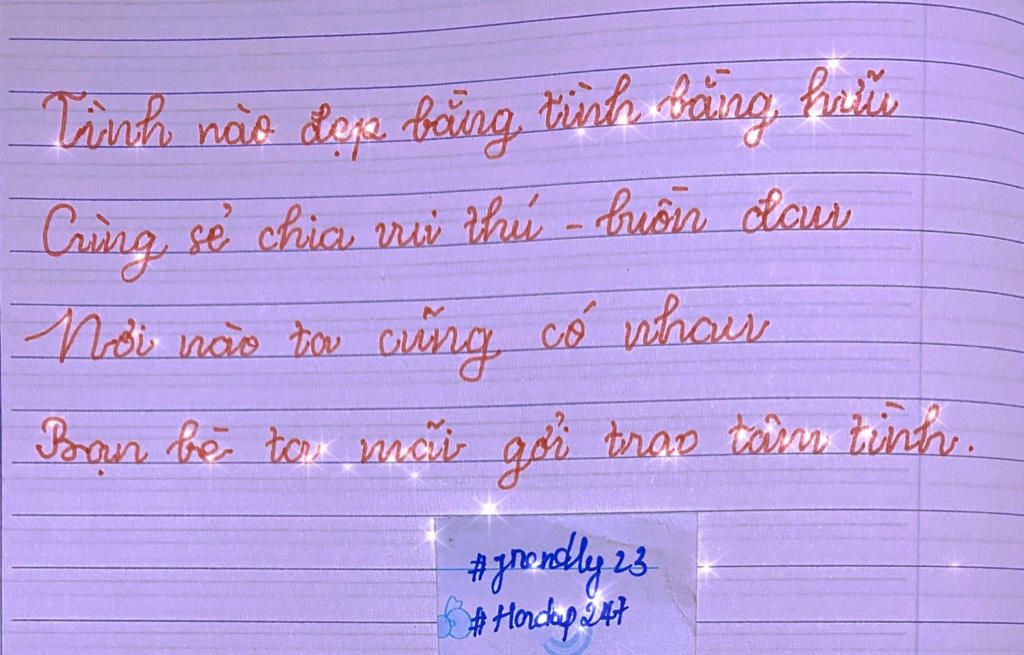 Tình nào đẹp bằng tình bằng hữu
Cùng sẻ chia vui thú - buồn đau
Nơi nào ta cũng có nhau
Bạn bè ta mãi gởi trao tâm tình.
#friendly 23
#Hoidap 247